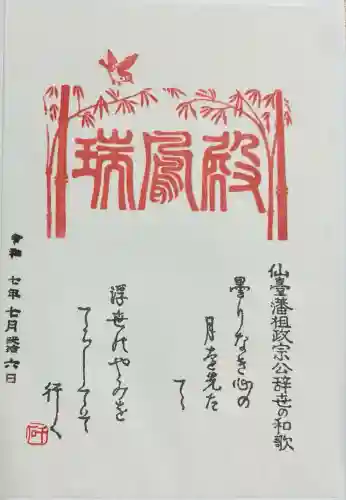 瑞鳳殿
仙臺藩祖政宗公辞世の和歌
曇りなき心の
月を先だ
てゝ
浮世のやみを
てらしてぞ
行く
令和 七年 七月 六日